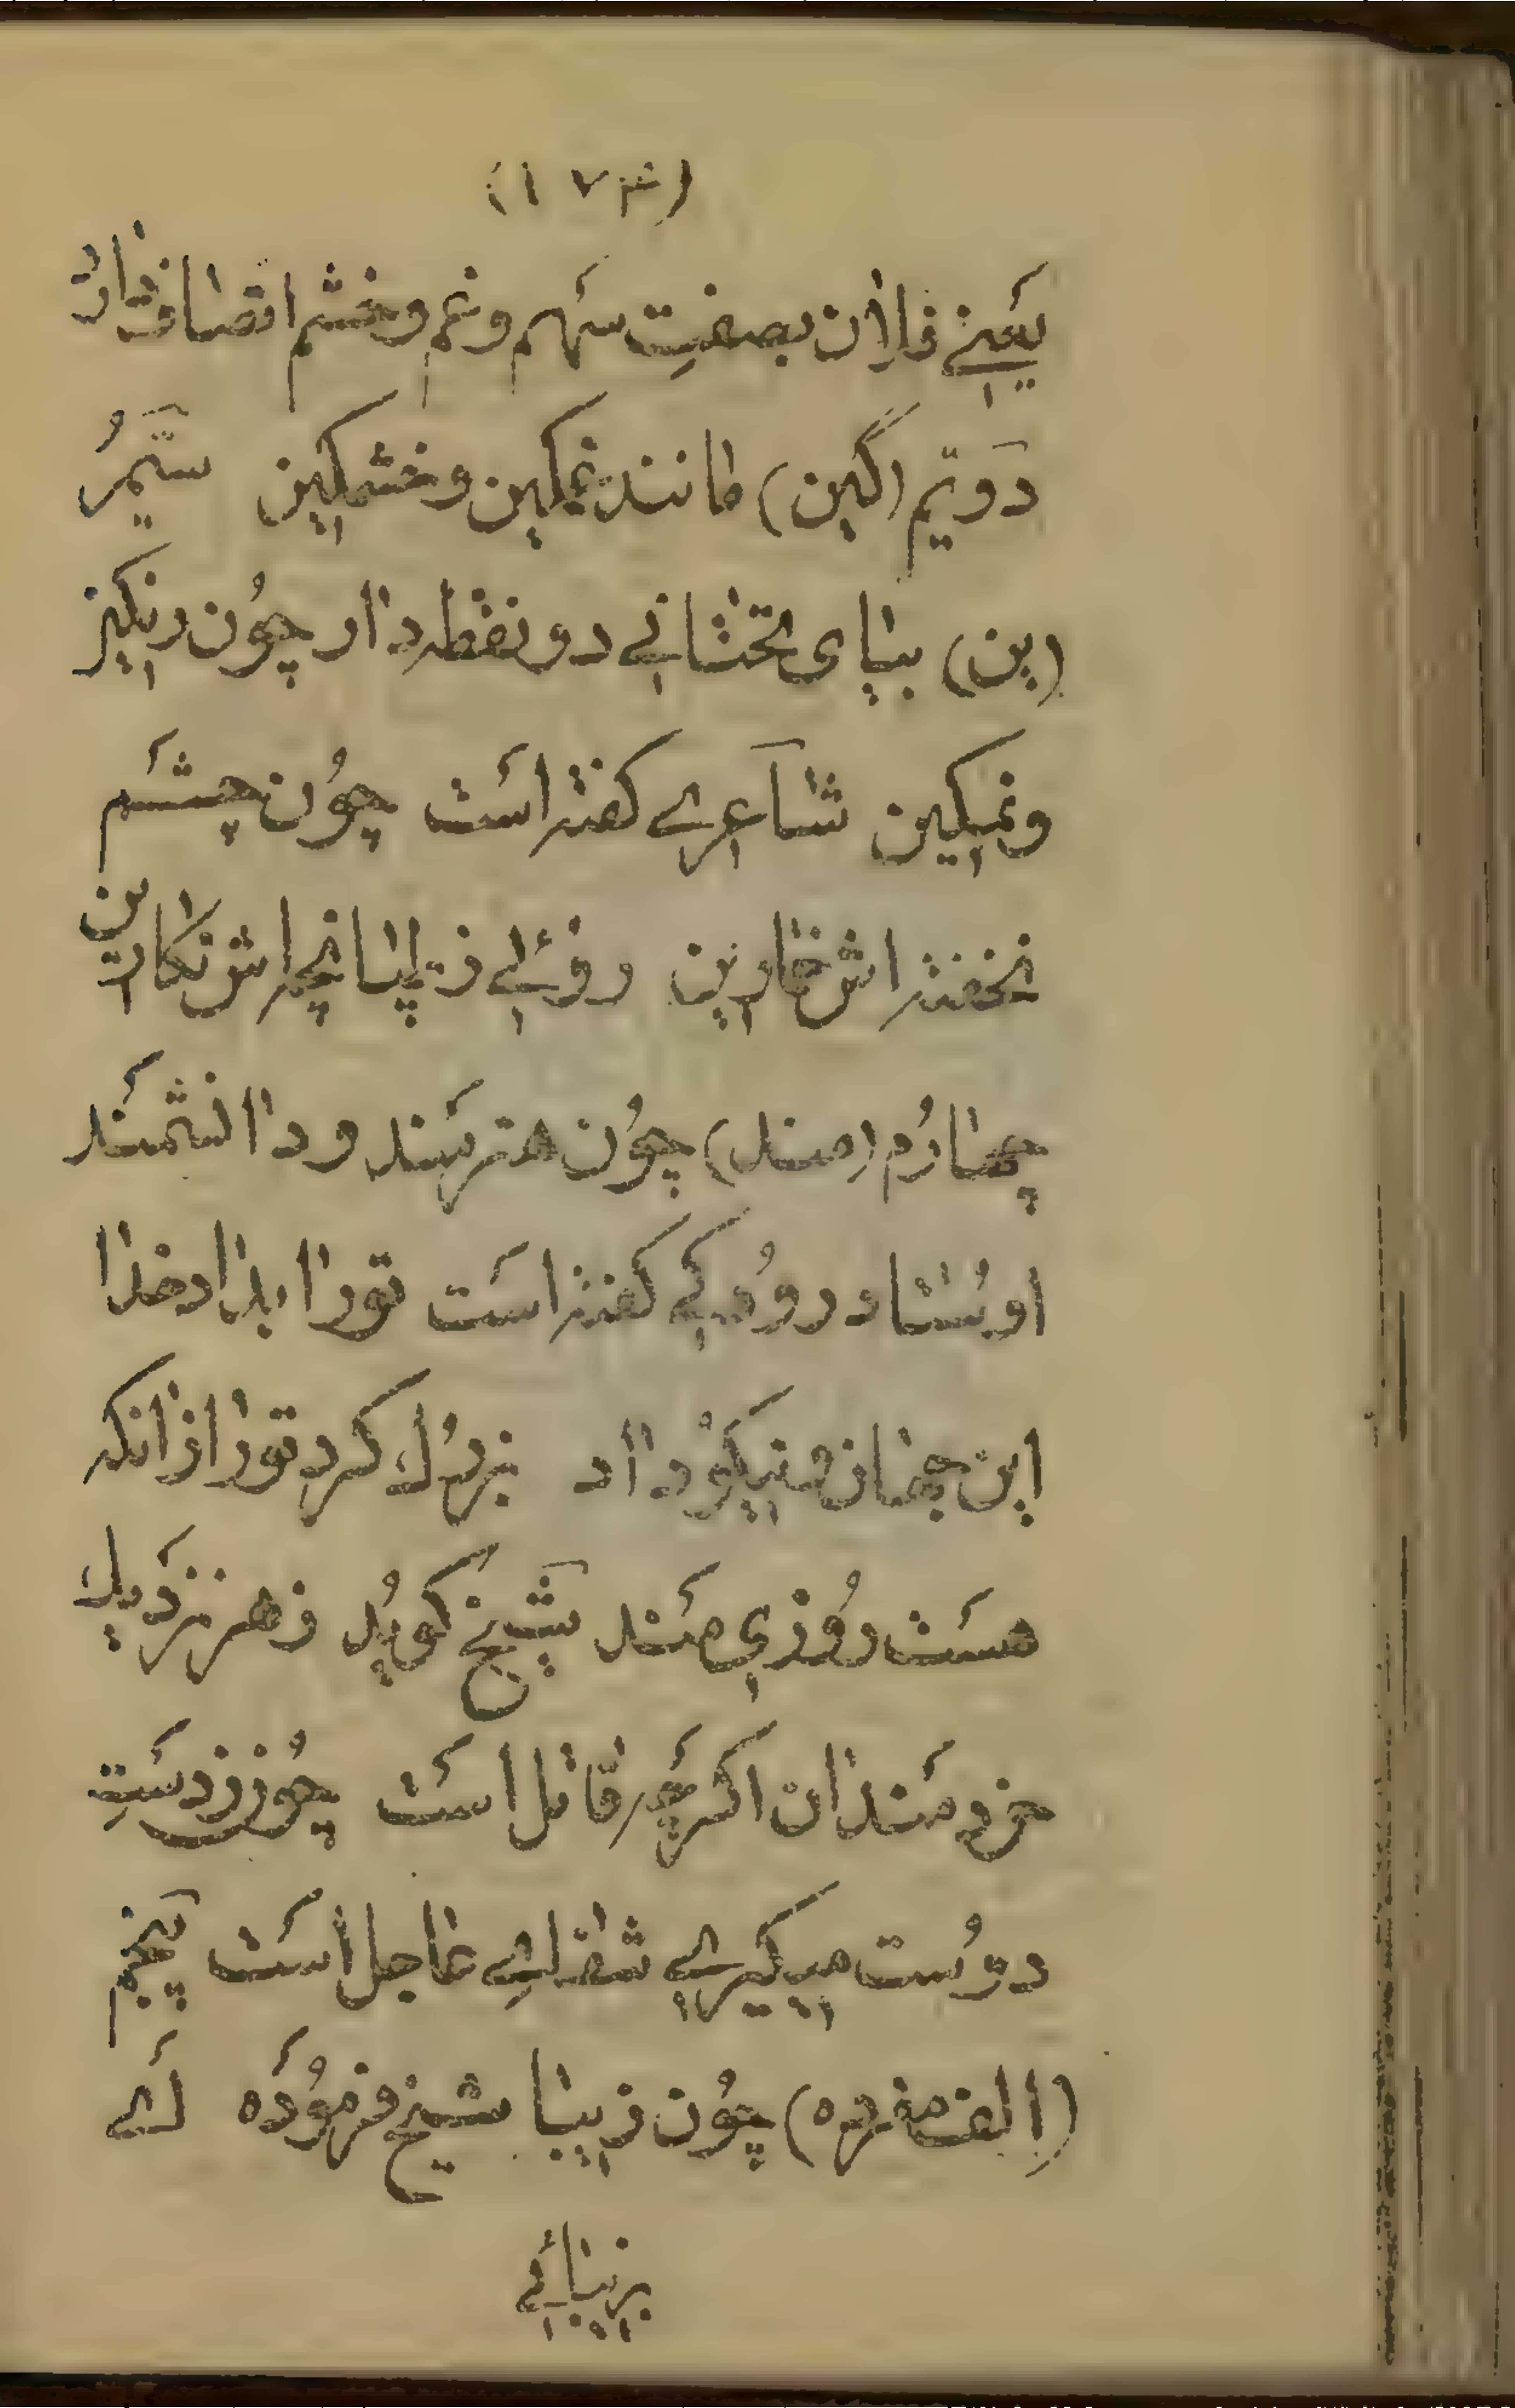 (۱۷۳)
یعنے فلان بصفتِ سَهم و غم و خشم اتصاف دارد
دَویّم (گین) مانند غمگین و خشمگین سَیّمُ
(ین) بیای تحتانے دو نقطه‌دار چوُن رنگین
و نمکین شاعرے کفته اسَت چوُن چشَم
نخفته اش خمارین روئے ز طپانچه اش نکارین
چهارُم (مند) چوُن هنرمَند و دانشمَند
اوسُتاد رودُکے کفته اسَت تورا بداد خدا
این جهان و نیکوُ داد بزرُك کرد تورا ازانکه
هسَت روُزی مَند شَیخ کویُد زهر نزدَیك
خردمَندان اکرچَه قاتل اسَت چوُن ز دسَتِ
دوسُت میکیرے شفاے عاجل اسَت پَنجم
(الف مفرده) چوُن زیبا شیخ فرموُدَه اَے
بزیبائے